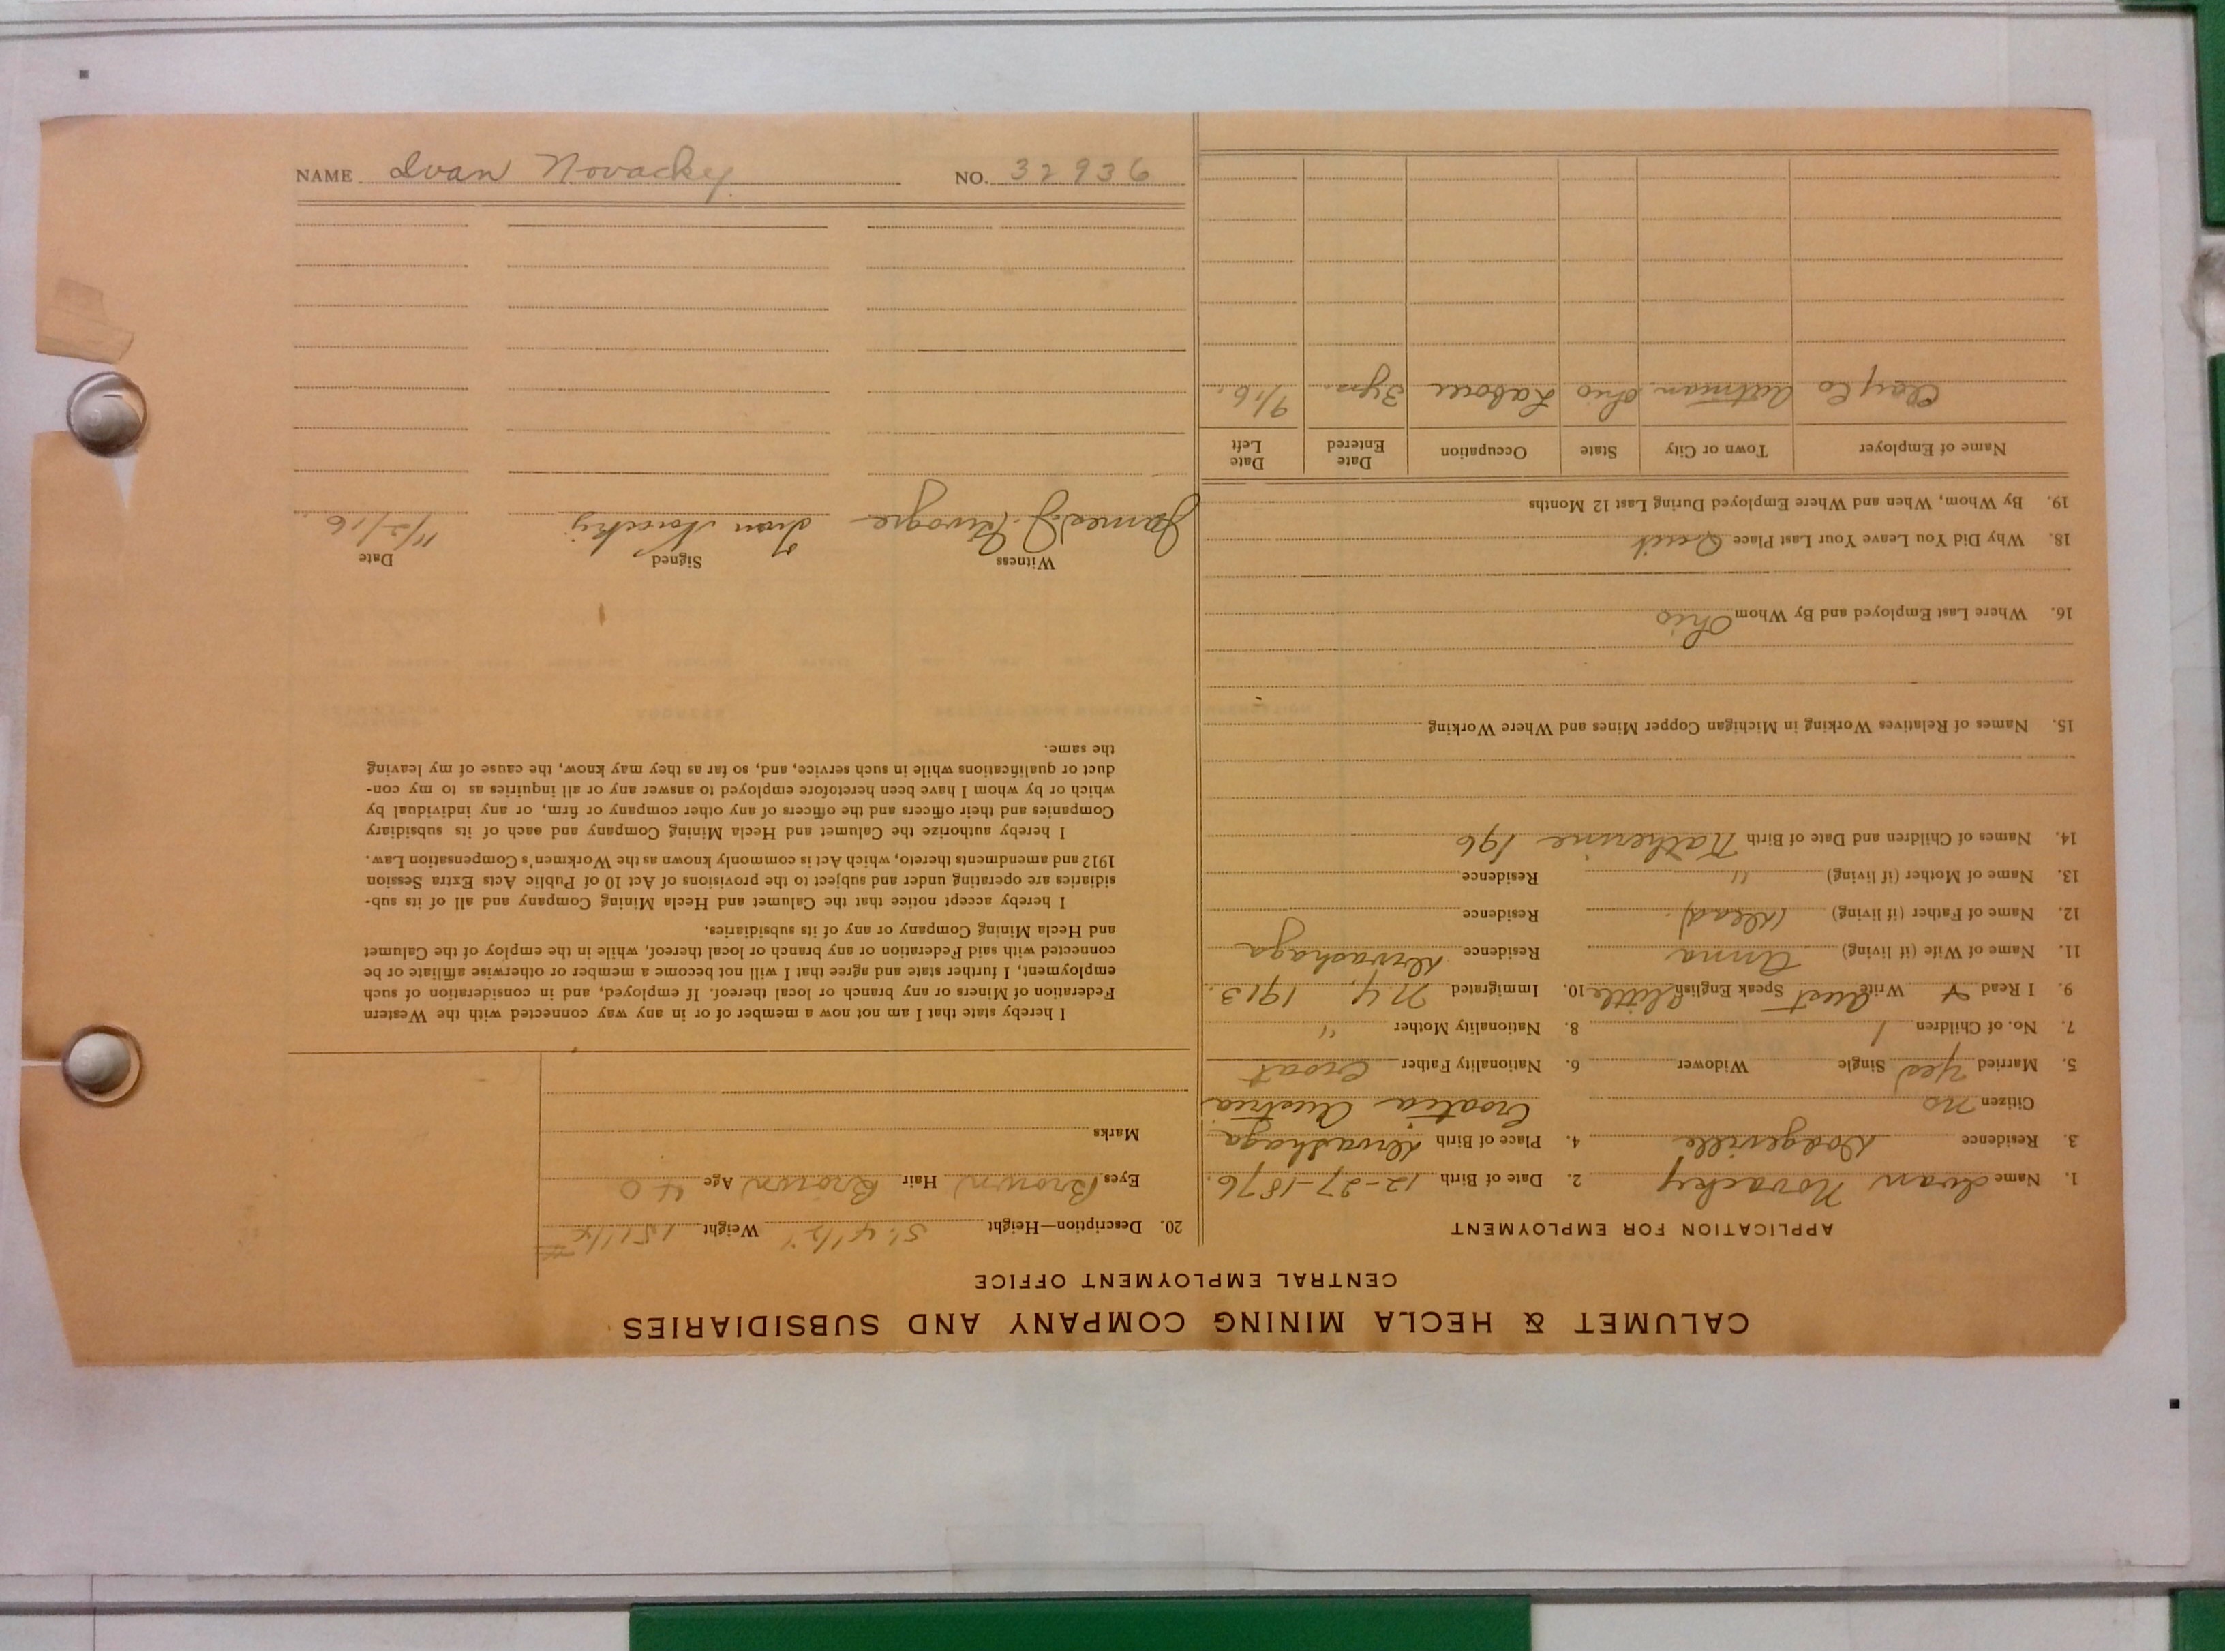 CALUMET & HECLA MINING COMPANY AND SUBSIDIARIES
CENTRAL EMPLOYMENT OFFICE
APPLICATION FOR EMPLOYMENT
1. Name Ivan Novacky 2. Date of Birth 12-27-1876.
3. Residence Dodgeville 4. Place of Birth
Citizen no Croatia Austria
5. Married Yes Single Widower 6. Nationality Father Croat
7. No. of Children 1 8. Nationality Mother "
9. I Read & Write Aust Speak English A little 10. Immigrated N.Y. 1913.
11. Name of Wife (if living) Anna Residence
12. Name of Father (if living) Dead. Residence
13. Name of Mother (if living) " Residence
14. Names of Children and Date of Birth Katherine
15. Names of Relatives Working in Michigan Copper Mines and Where Working
16. Where Last Employed and By Whom Ohio
18. Why Did You Leave Your Last Place Quit
19. By Whom, When and Where Employed During Last 12 Months
Name of Employer Town or City State Occupation Date Entered Date Left
Clay Co Aultman. Ohio Laborer 3 yrs. 9/16.
20. Description—Height 5'. 4 1/2" Weight
Eyes Brown Hair Brown Age 40
Marks
I hereby state that I am not now a member of or in any way connected with the Western
Federation of Miners or any branch or local thereof. If employed, and in consideration of such
employment, I further state and agree that I will not become a member or otherwise affiliate or be
connected with said Federation or any branch or local thereof, while in the employ of the Calumet
and Hecla Mining Company or any of its subsidiaries.
I hereby accept notice that the Calumet and Hecla Mining Company and all of its sub-
sidiaries are operating under and subject to the provisions of Act 10 of Public Acts Extra Session
1912 and amendments thereto, which Act is commonly known as the Workmen's Compensation Law.
I hereby authorize the Calumet and Hecla Mining Company and each of its subsidiary
Companies and their officers and the officers of any other company or firm, or any individual by
which or by whom I have been heretofore employed to answer any or all inquiries as to my con-
duct or qualifications while in such service, and, so far as they may know, the cause of my leaving
the same.
Witness Signed Date
James J. Ivan Novacky 11/2/16.
NAME Ivan Novackey. NO. 32936